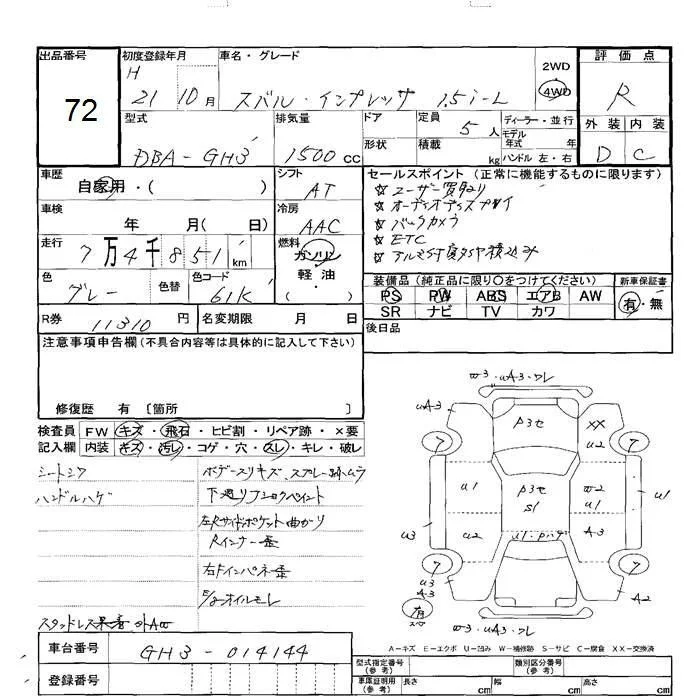 出品番号
72
初度登録年月
H 21 10月
車名・グレード
スバル・インプレッサ 1.5i-L
2WD
4WD
評価点
R
外装 内装
D C
型式
DBA-GH3
排気量
1500 cc
ドア
形状
定員
5 人
積載
kg
ディーラー・並行
モデル
年式 年
ハンドル 左・右
車歴
自家用・( )
シフト
AT
セールスポイント(正常に機能するものに限ります)
☆ ユーザー買取り
☆ オーディオディスプレイ
☆ バックカメラ
☆ ETC
☆ アルミ付夏タイヤ積込み
車検
年 月( 日)
冷房
AAC
走行
7万4千851 km
燃料
ガソリン
軽油
( )
色
グレー
色替
色コード
61K
装備品(純正品に限り○をつけてください)
新車保証書
PS PW ABS エアB AW
SR ナビ TV カワ
有・無
R券
11310 円
名変期限 月 日
後日品
注意事項申告欄(不具合内容等は具体的に記入して下さい)
修復歴 有 〔箇所 〕
検査員 FW キズ・飛石・ヒビ割・リペア跡・×要
記入欄 内装 キズ・汚レ・コゲ・穴・スレ・キレ・破レ
シートシワ
ハンドルハゲ
ボデースリキズ、スプレー跡ムラ
下廻りノックスペイント
左Rサイドポケット曲がり
Rインナー歪
右Fインパネ歪
E/gオイルモレ
スタッドレス
W3・UA3・ワレ
UA3
P3セ
XX
U2
7
7
U1
P3セ
S1
W2
U1
U1
U3
U2
U1・Pハゲ
A3
7
7
U3
A3
A2
有
スペア
A=キズ E=エクボ U=凹み W=補修跡 S=サビ C=腐食 XX=交換済
車台番号
GH3-014144
登録番号
型式指定番号
(参考)
類別区分番号
(参考)
車庫証明用
(参考)
長さ cm
幅 cm
高さ cm